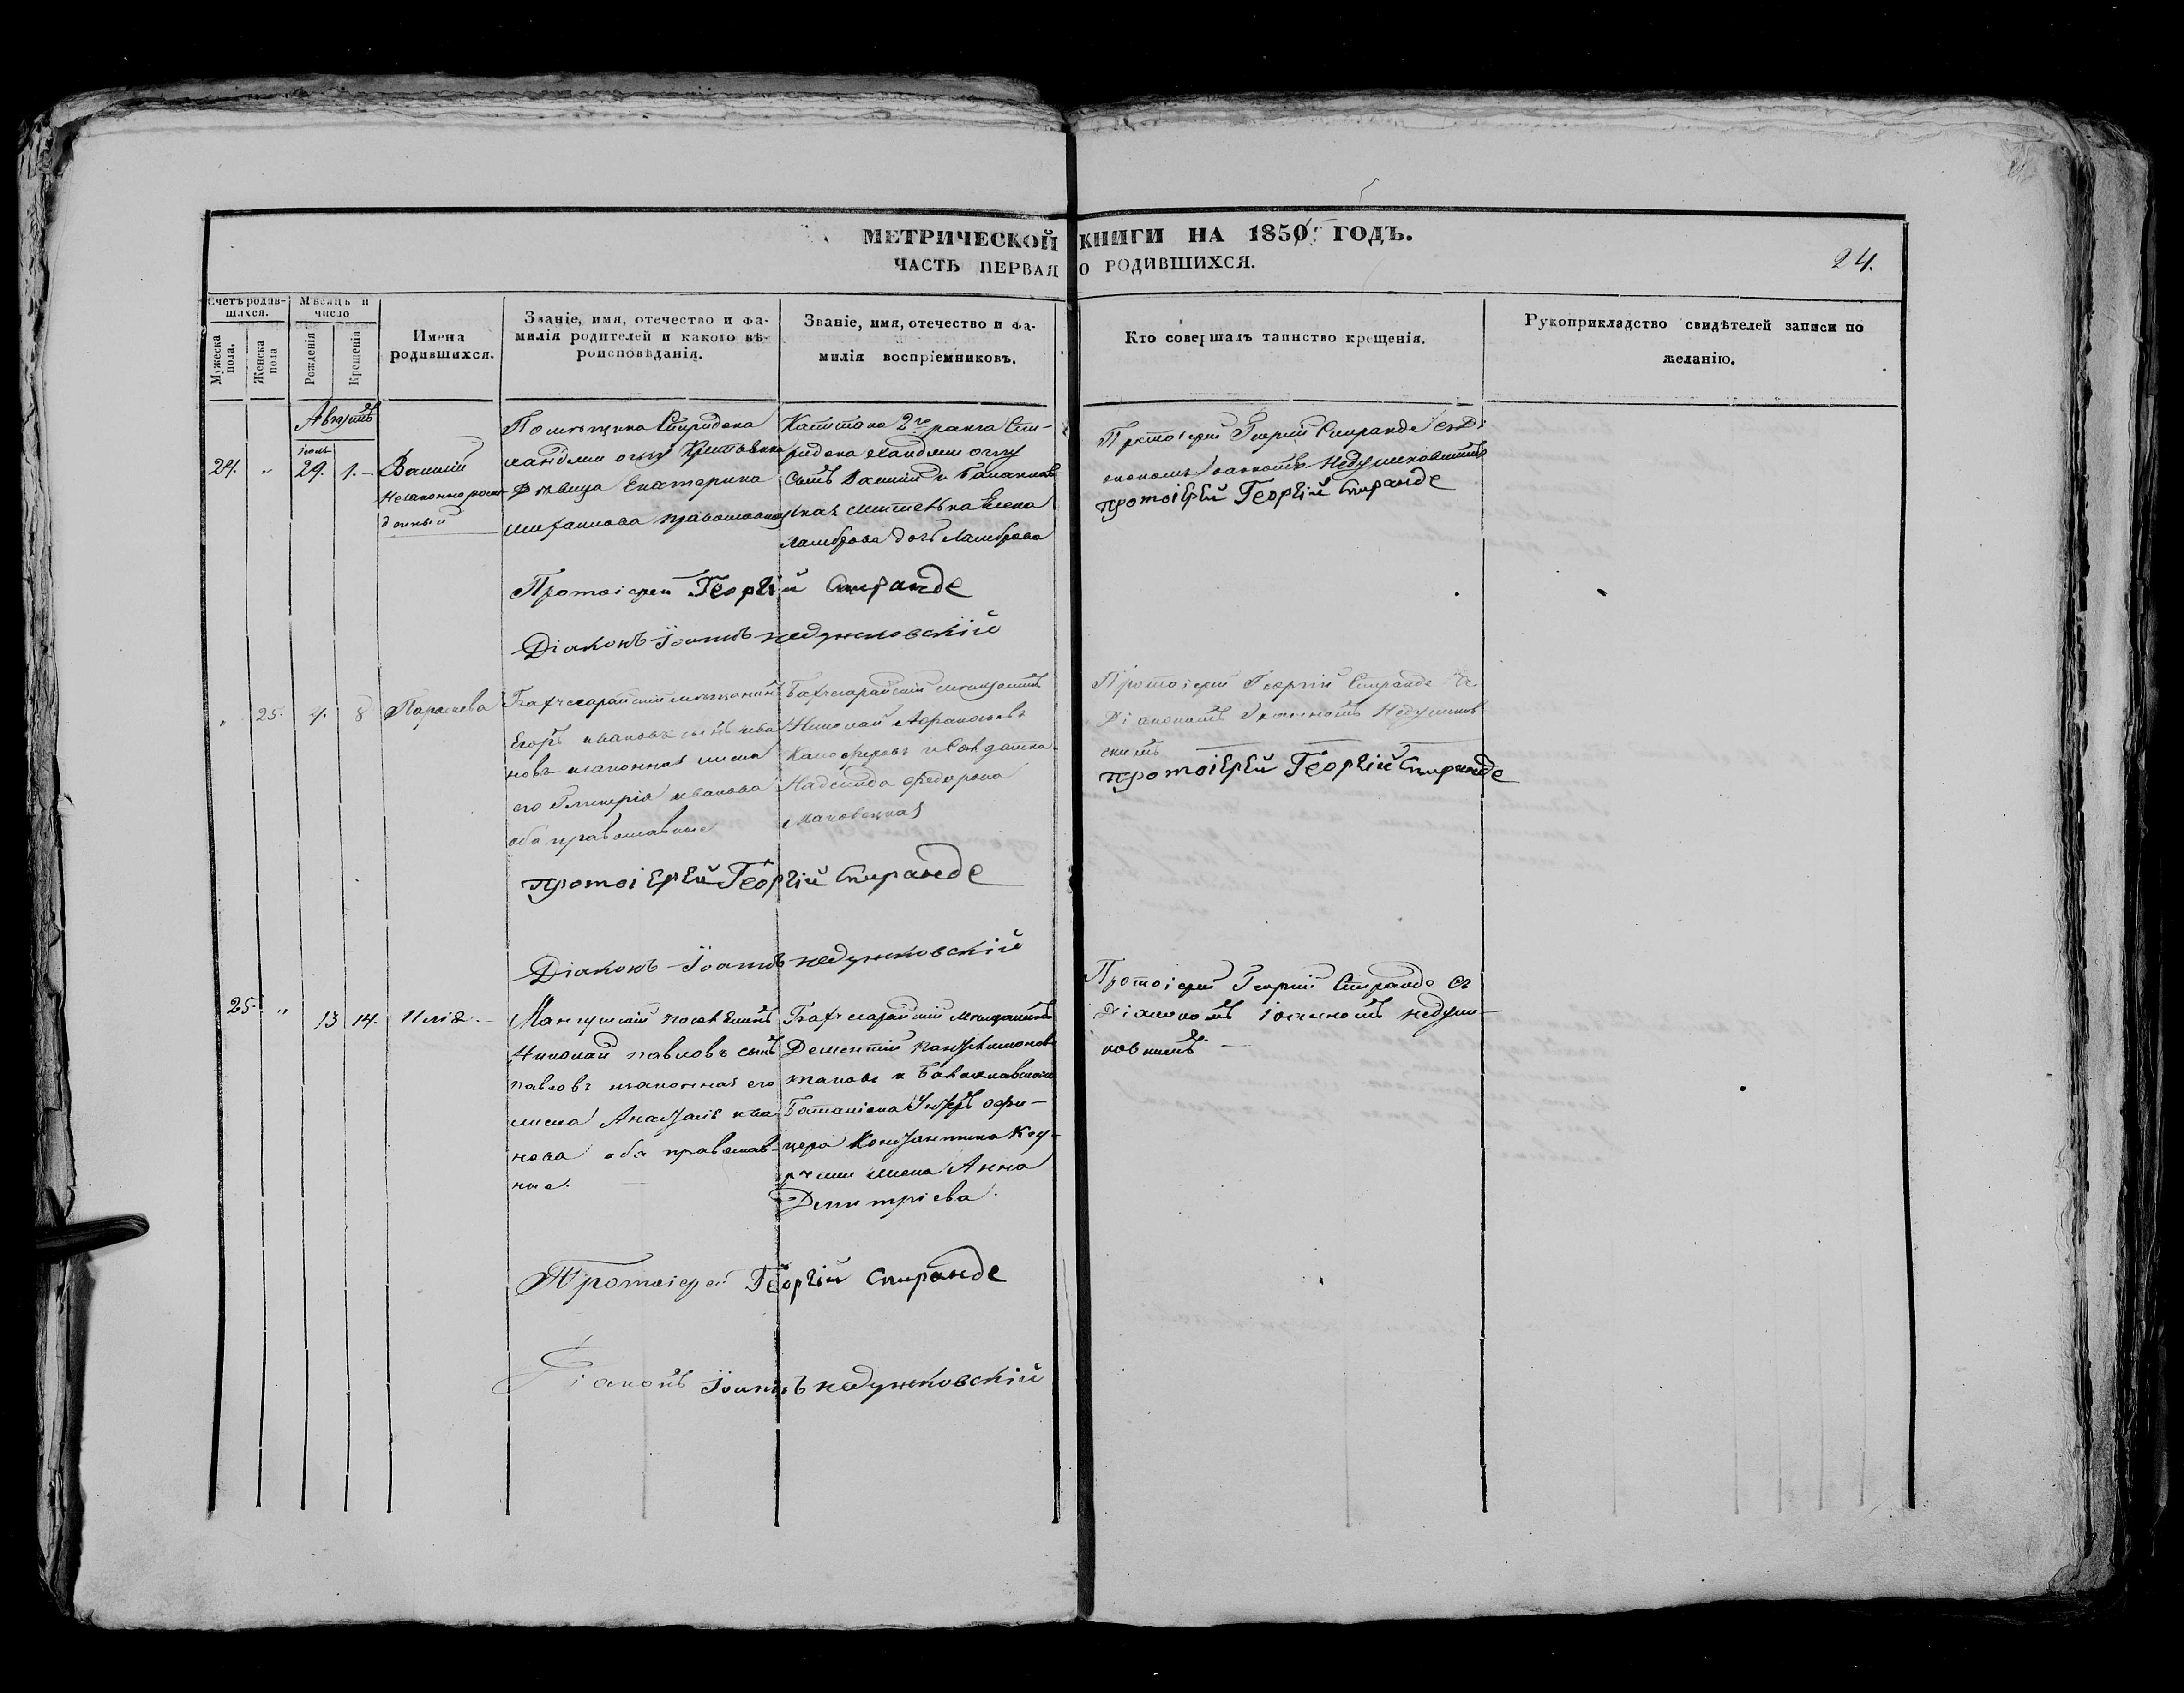 МЕТРИЧЕСКОЙ КНИГИ НА 1850 ГОДЪ.
ЧАСТЬ ПЕРВАЯ О РОДИВШИХСЯ.
24.
Счетъ родив-
шихся.
Мѣсяцъ и
число
Мужеска
пола.
Женска
пола
Рожденія
Крещенія
Имена
родившихся.
Званіе, имя, отечество и фа-
милія родителей и какого вѣ-
роисповѣданія.
Званіе, имя, отечество и фа-
милія воспріемниковъ.
Кто совершалъ таинство крещенія.
Рукоприкладство свидѣтелей записи по
желанію.
Августъ
24. " 29. 1. Василій
Незаконнорож-
денный
Помѣщика Спиридона
Дѣвица Екатерина
православная
Капитана 2го ранга Спи-
ридона
сынъ Василій и
Елена
Ламброва дочь Ламброва
Протоіерей Георгій Спиранде съ Ді
протоіерей Георгій Спиранде
Протоіерей Георгій Спиранде
Діаконъ Іоаннъ Недужковскій
" 25. 4. 8 Параскева
Бахчисарайскій мѣщанинъ
Егоръ Ивановъ сынъ Ива
новъ законная жена
его Гликерія Иванова
оба православные
Бахчисарайскій мещанинъ
Николай
и Солдатка
Надежда Федорова
Маковецкая
Протоіерей Георгій Спиранде съ
Діакономъ Іоанномъ Недужков
скимъ
протоіерей Георгій Спиранде
протоіерей Георгій Спиранде
Діаконъ Іоаннъ Недужковскій
25. " 13 14. Илія.
Николай Павловъ сынъ
Павловъ законная его
жена Ива
нова оба православ-
ные.
Бахчисарайскій мещанинъ
Дементій
и Балаклавскаго
Баталіона Унтеръ офи-
цера Константина
жена Анна
Димитріева.
Протоіерей Георгій Спиранде съ
Діакономъ Іоанномъ Недуж-
ковскимъ.
Протоіерей Георгій Спиранде
Діаконъ Іоаннъ Недужковскій